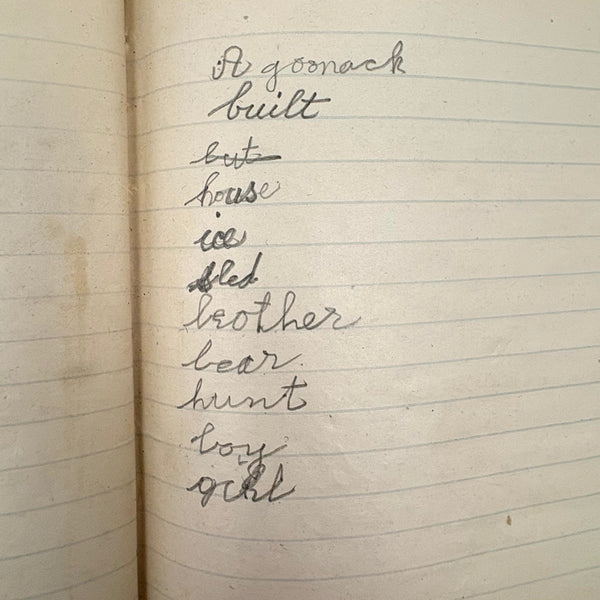 A goonack
built
but
house
ice
sled
brother
bear
hunt
boy
girl